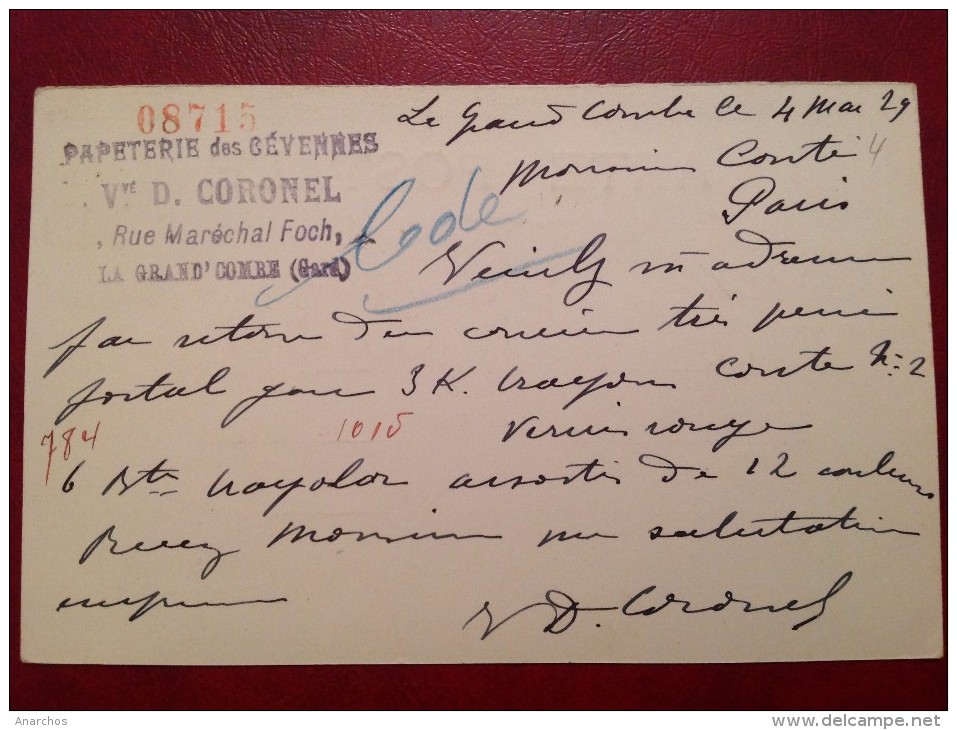 08715
PAPETERIE des CÉVENNES
Vve D. CORONEL
, Rue Maréchal Foch,
LA GRAND'COMBE (Gard)
La Grand Combe le 4 Mai 29
4
Monsieur Conté
Paris
Veuillez m adresser
par retour du courrier très
postal gare 3 K. crayons Conte No 2
784
1015
Vernis rouge
6 Btes crayolor assortis de 12 couleurs
Recevez Monsieur mes salutations
empressées
V D. Coronel
Anarchos
www.delcampe.net